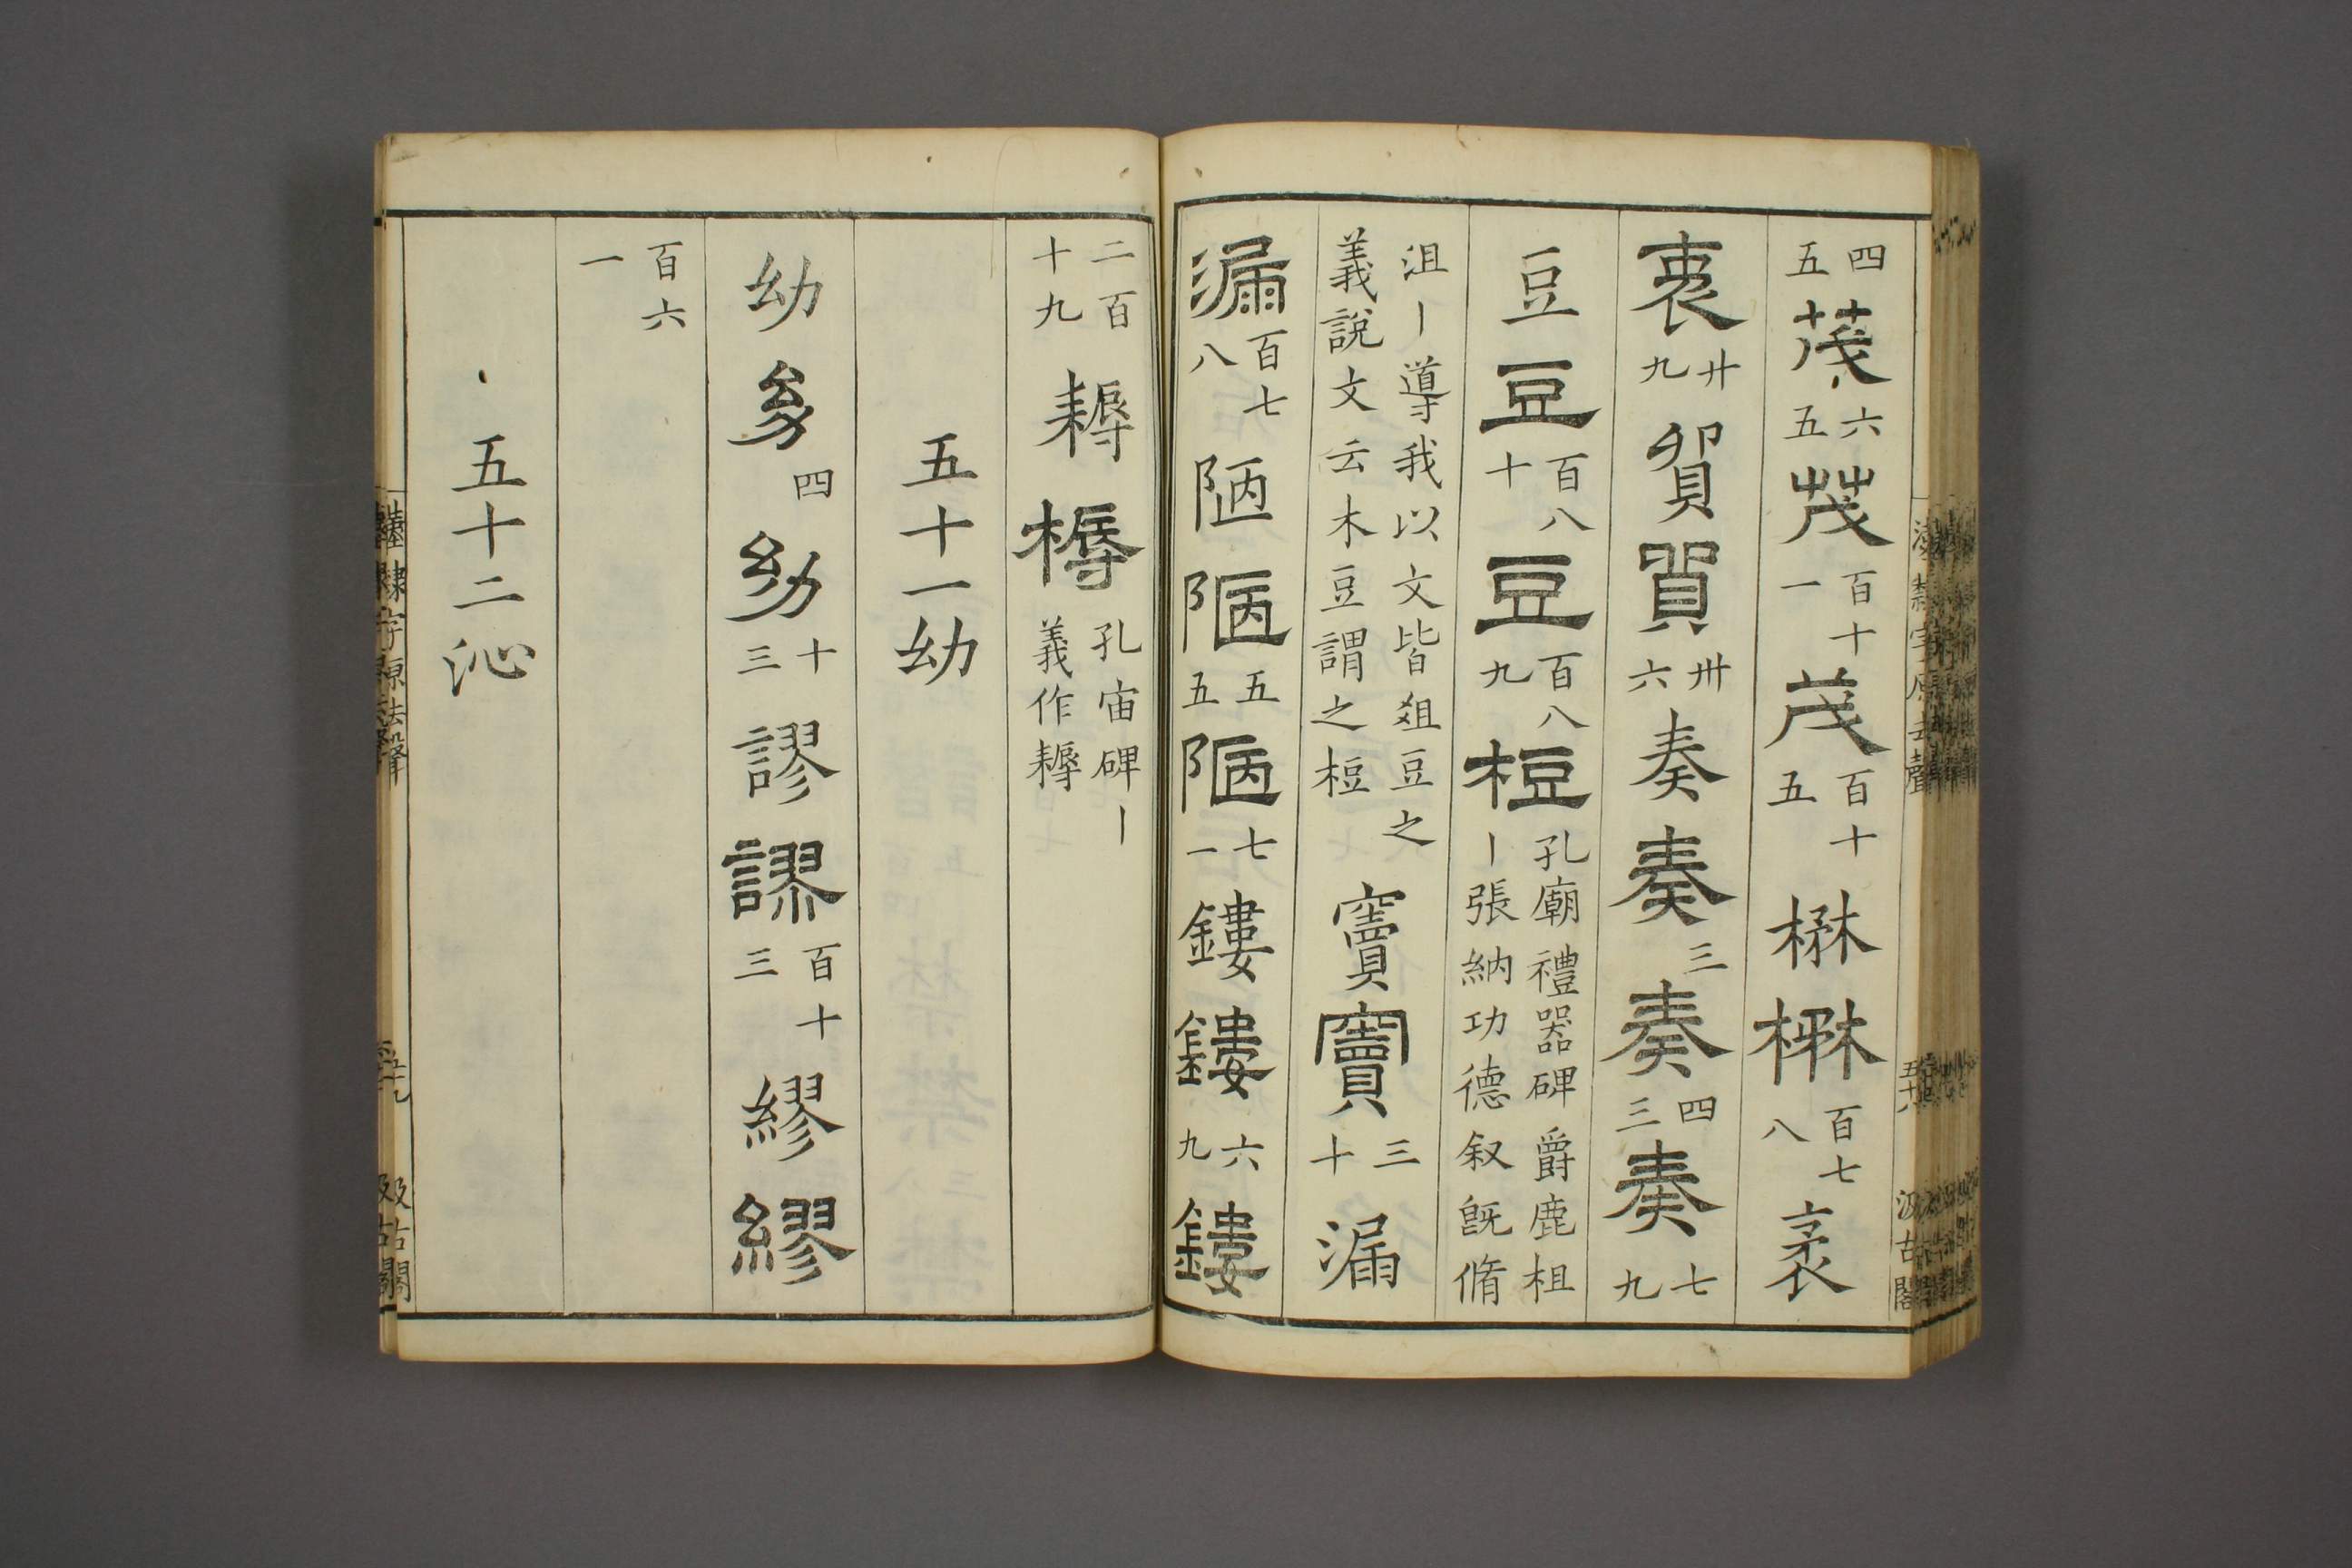 四五茂六五茂百十一茂百十五楙楙百七八袤
袤廿九貿貿卅六奏奏三奏四三奏七九
豆豆百八十豆百八九梪孔廟禮器碑爵鹿柤丨張納功德叙既脩
沮丨導我以文皆爼豆之義說文云木豆謂之梪竇竇三十漏
漏百七八陋陋五五陋七一鏤鏤六九鏤
二百十九耨槈孔宙碑丨義作耨
五十一幼
幼㓜四幼十三謬謬百十三繆繆
百六一
五十二沁
漢隸字原去聲
五十八
汲古閣
漢隸字原去聲
五十九
汲古閣